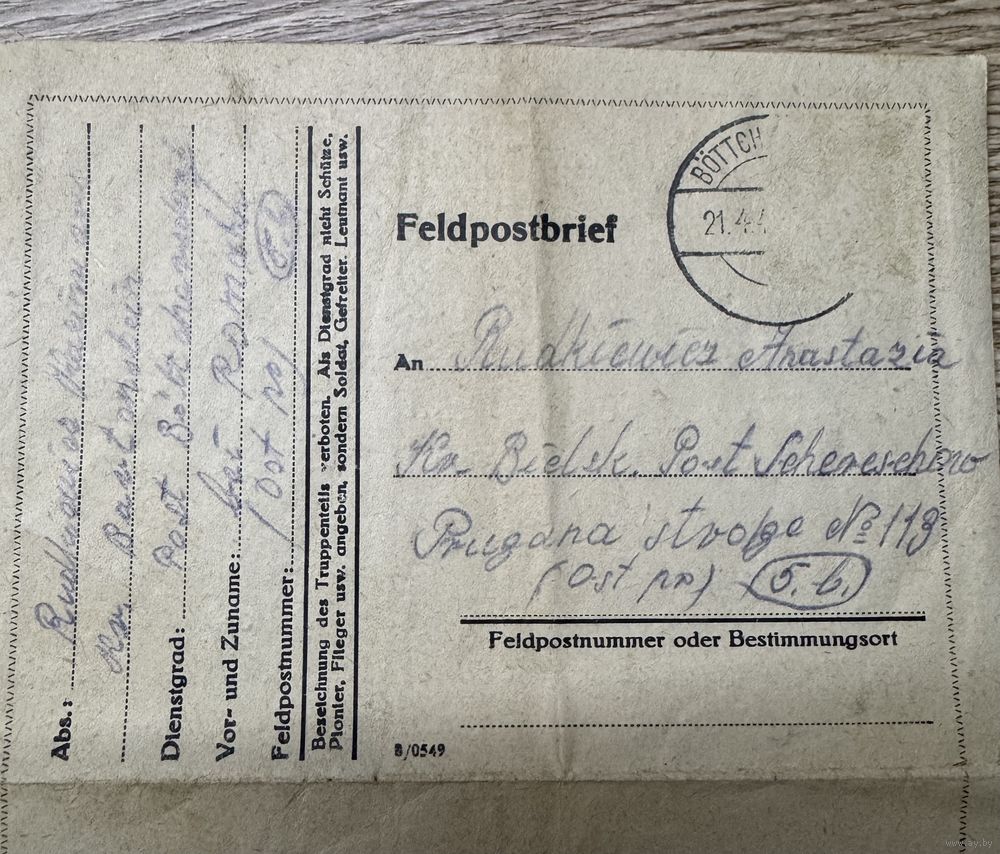 Feldpostbrief
BÖTTCH
21.4.4
An Rudkiewicz Anastazia
Kr. Bielsk. Post Schereschewo
Prugana strosse № 113
(Ost pr) 5.b.
Feldpostnummer oder Bestimmungsort
B/0549
Abs.: Rudkiewicz
Kr. Bartenstein
Dienstgrad: Post Böttchersdorf
Vor- und Zuname: bai
Feldpostnummer: (Ost pr) 5.b
Bezeichnung des Truppenteils verboten. Als Dienstgrad nicht Schütze,
Pionier, Flieger usw. angeben, sondern Soldat, Gefreiter. Leutnant usw.
www.ay.by